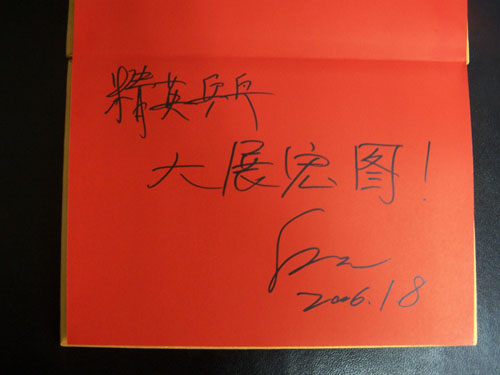 精英乒乓
大展宏图!
2006.18